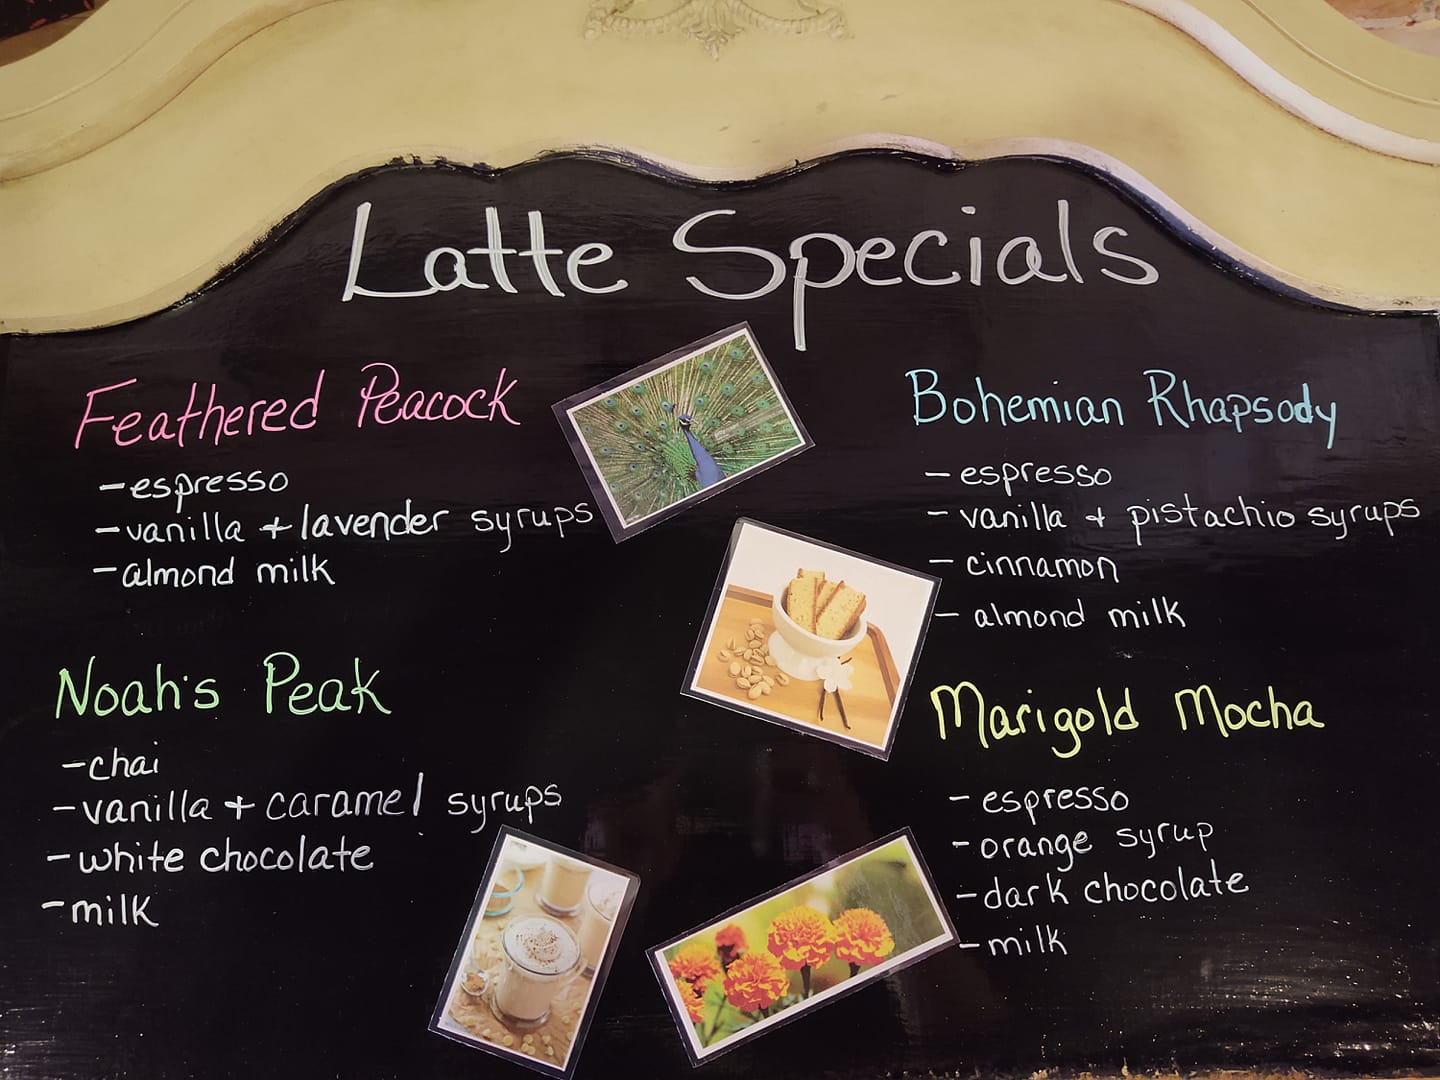 Latte Specials
Feathered Peacock
- espresso
- vanilla + lavender syrups
- almond milk
Noah's Peak
- chai
- vanilla + caramel syrups
- white chocolate
- milk
Bohemian Rhapsody
- espresso
- vanilla + pistachio syrups
- cinnamon
- almond milk
Marigold Mocha
- espresso
- orange syrup
- dark chocolate
- milk